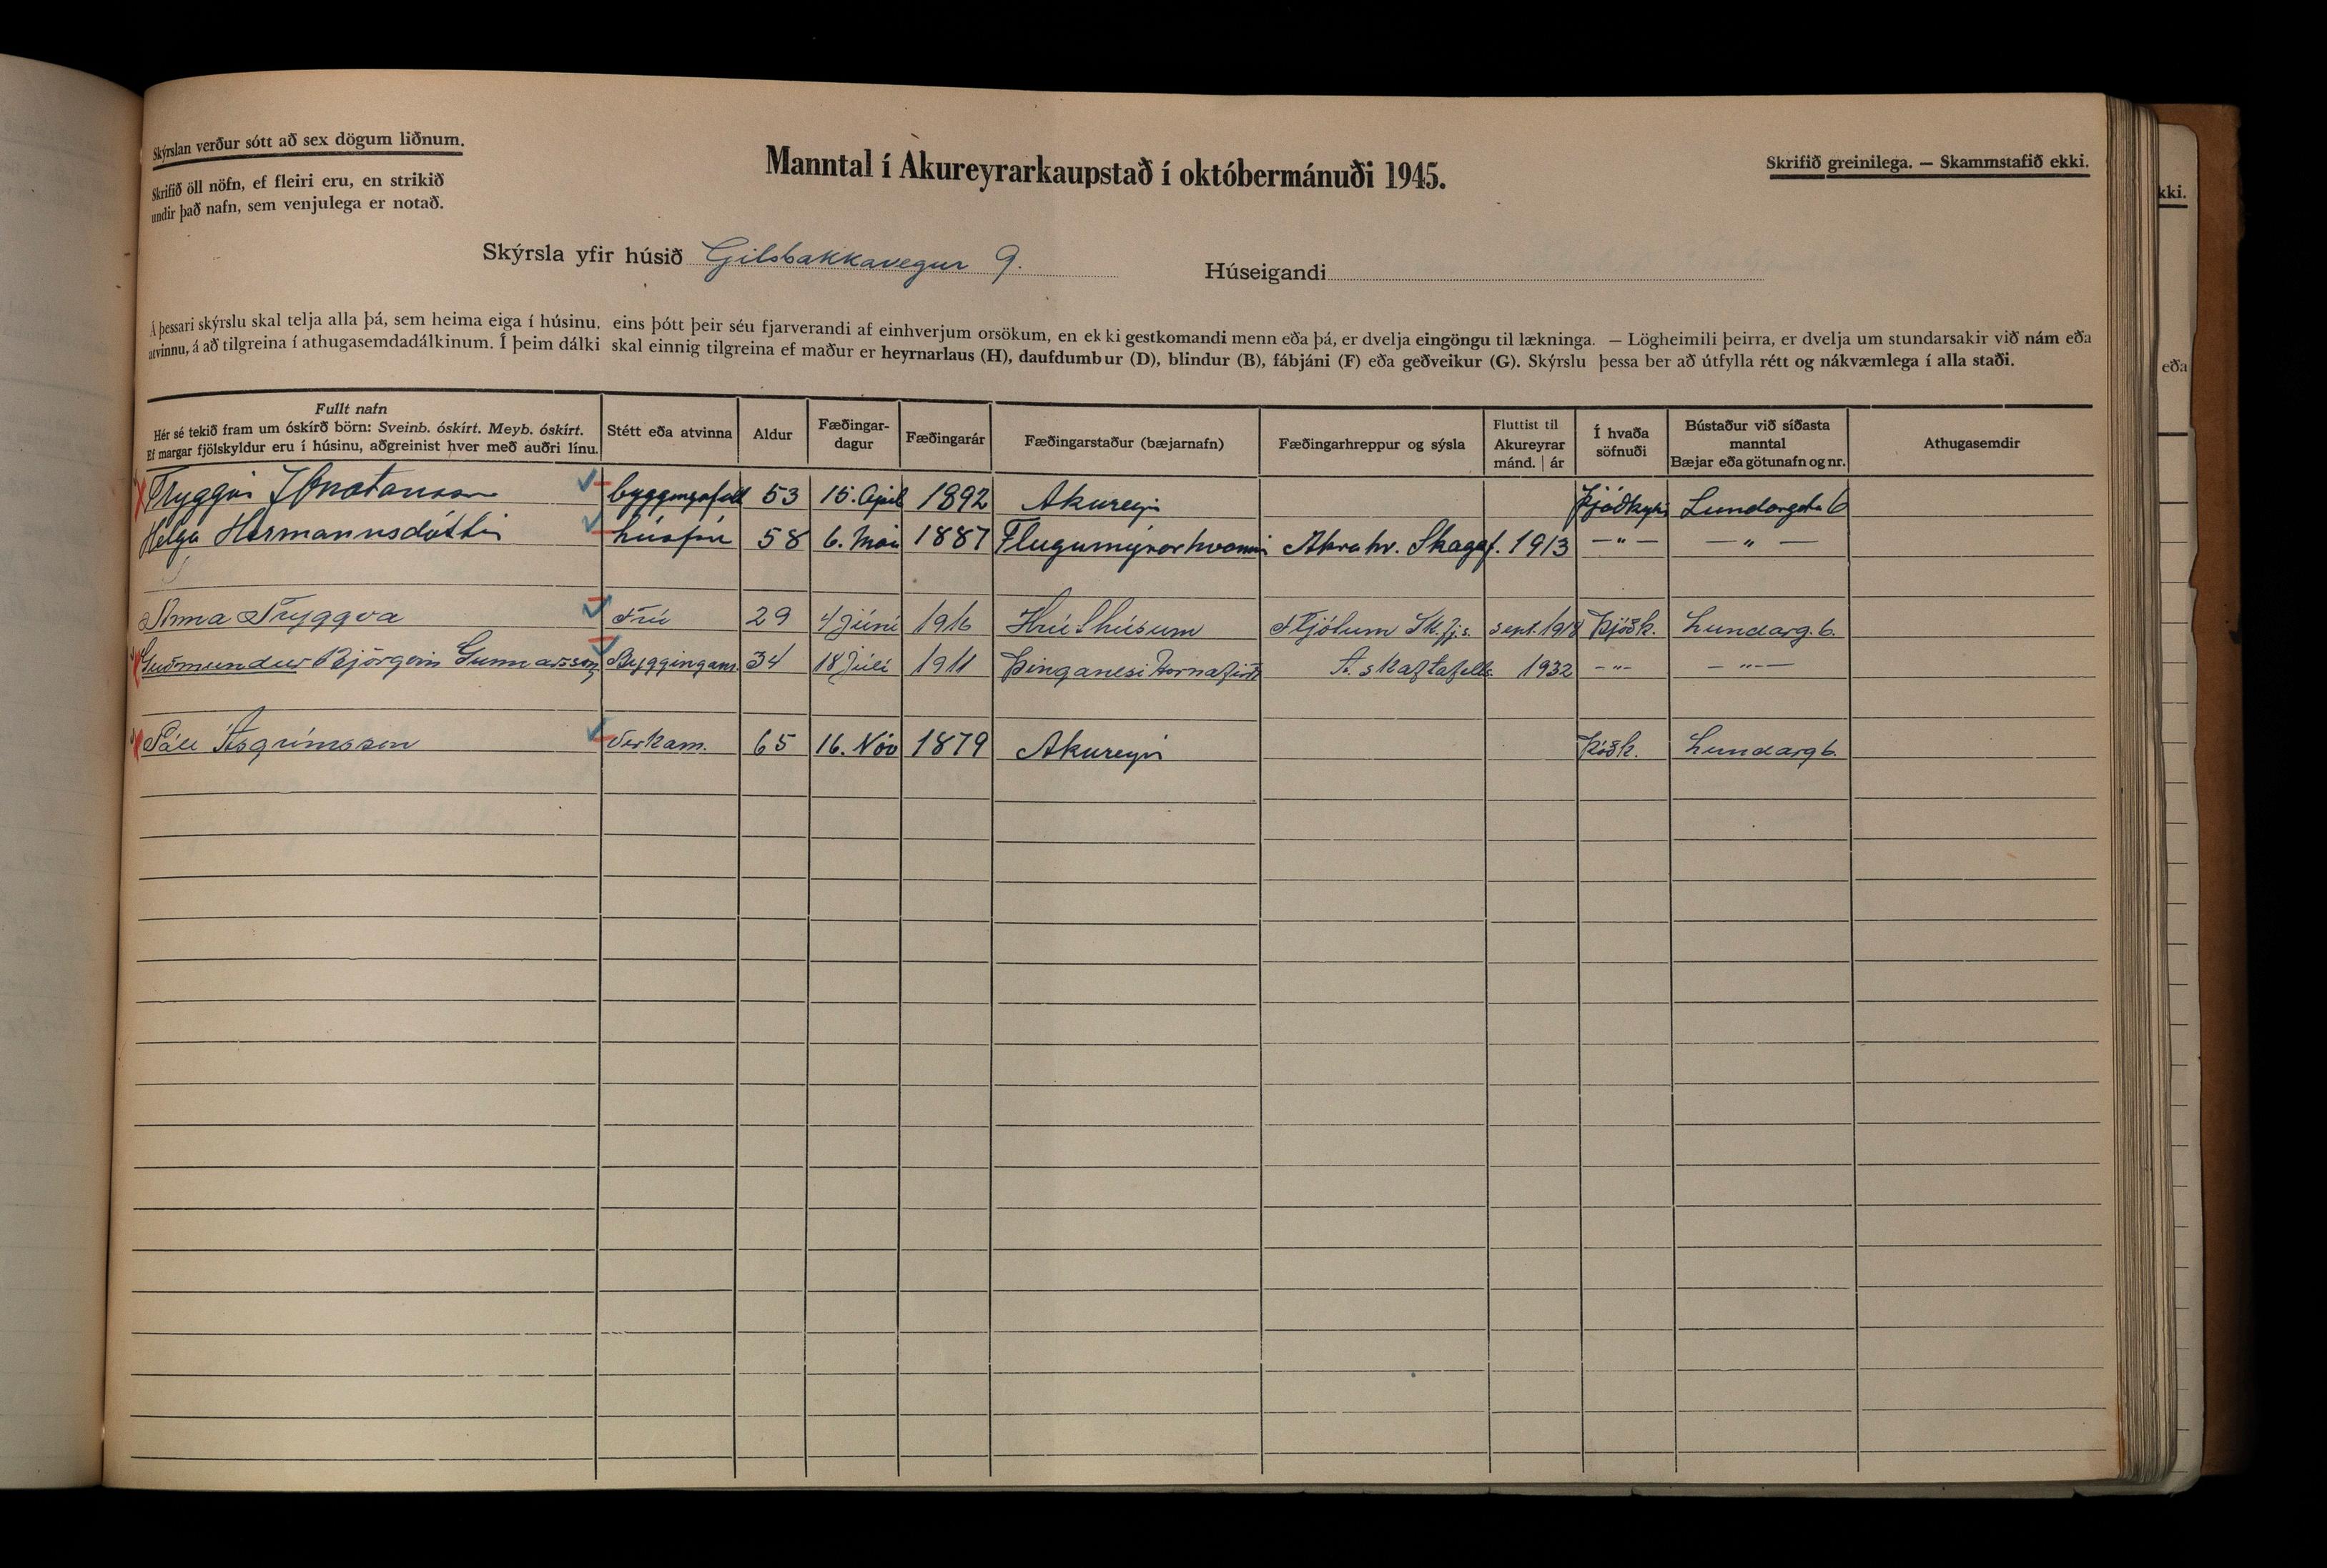 Skýrslan verður sótt að sex dögum liðnum.
Skrifið öll nöfn, ef fleiri eru, en strikið
undir það nafn, sem venjulega er notað.
Manntal í Akureyrarkaupstað í októbermánuði 1945.
Skrifið greinilega. — Skammstafið ekki.
kki.
Skýrsla yfir húsið Gilsbakkavegur 9.
Húseigandi
Á þessari skýrslu skal telja alla þá, sem heima eiga í húsinu, eins þótt þeir séu fjarverandi af einhverjum orsökum, en ekki gestkomandi menn eða þá, er dvelja eingöngu til lækninga. — Lögheimili þeirra, er dvelja um stundarsakir við nám eða
atvinnu, á að tilgreina í athugasemdadálkinum. Í þeim dálki skal einnig tilgreina ef maður er heyrnarlaus (H), daufdumbur (D), blindur (B), fábjáni (F) eða geðveikur (G). Skýrslu þessa ber að útfylla rétt og nákvæmlega í alla staði.
eða
Fullt nafn
Hér sé tekið fram um óskírð börn: Sveinb. óskírt. Meyb. óskírt.
Ef margar fjölskyldur eru í húsinu, aðgreinist hver með auðri línu.
Stétt eða atvinna
Aldur
Fæðingar-
dagur
Fæðingarár
Fæðingarstaður (bæjarnafn)
Fæðingarhreppur og sýsla
Fluttist til
Akureyrar
mánd. | ár
Í hvaða
söfnuði
Bústaður við síðasta
manntal
Bæjar eða götunafn og nr.
Athugasemdir
Tryggvi Jónatansson 53 15. Apríl 1892 Akureyri Þjóðkyrk Lundargata 6
Helga Hermannsdóttir húsfrú 58 6. Maí 1887 Flugumýrarhvammi Akrahr. Skagaf. 1913 —"— —"—
Anna Tryggva Frú 29 4 Júní 1916 Fljótum Sk.fj.s. sept. 1918 Þjóðk. Lundarg. 6.
Guðmundur Björgvin Gunnarsson Byggingam. 34 18 Júlí 1911 Þinganesi Hornafirði A. skaftafells. 1932 —"— —"—
Páll Ásgrímsson Verkam. 65 16. Nóv 1879 Akureyri Þjóðk. Lundarg 6.